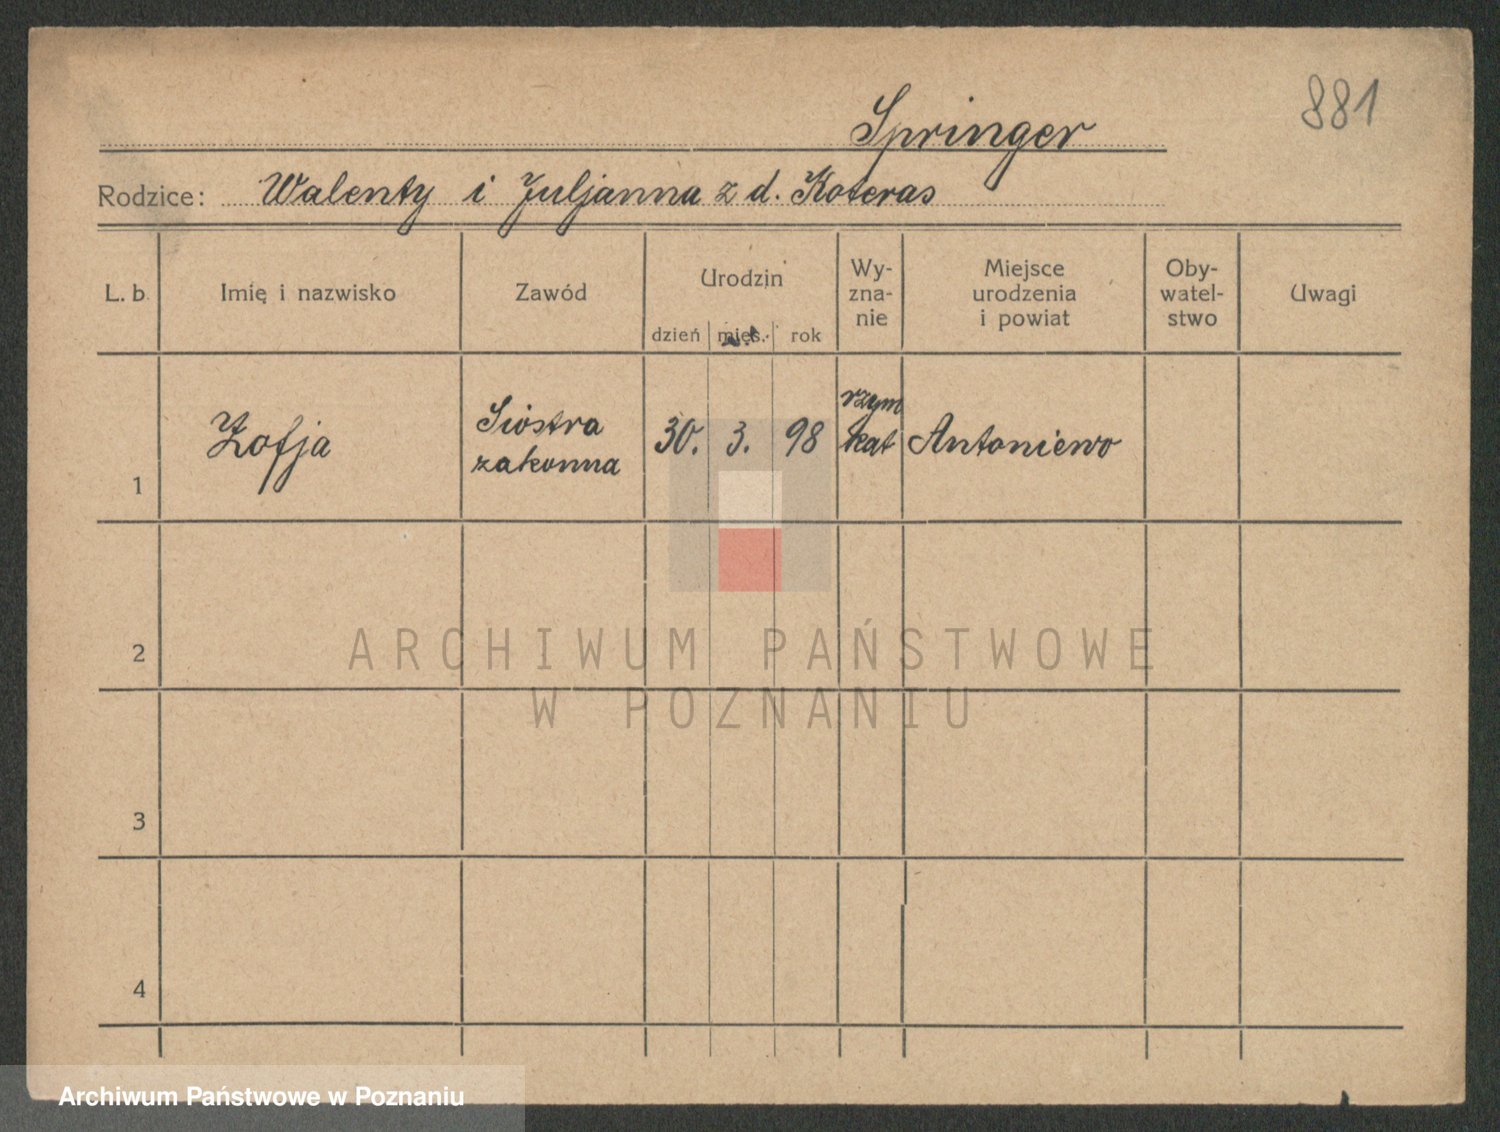 881
Springer
Rodzice: Walenty i Juljanna z d. Koteras
L. b. Imię i nazwisko Zawód Urodzin dzień mies. rok Wy-
zna-
nie Miejsce
urodzenia
i powiat Oby-
watel-
stwo Uwagi
1 Zofja Siostra
zakonna 30. 3. 98 rzym
kat Antoniewo
2
ARCHIWUM PAŃSTWOWE
W POZNANIU
3
4
Archiwum Państwowe w Poznaniu